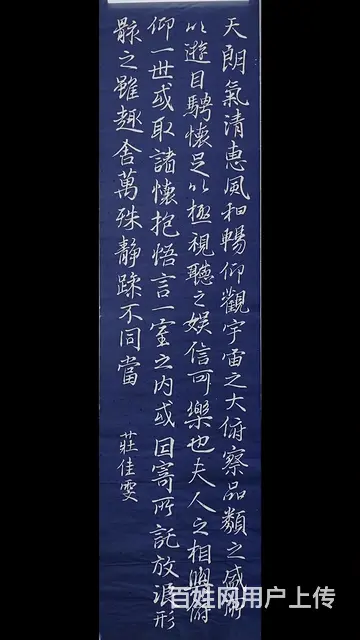 天朗氣清惠風和暢仰觀宇宙之大俯察品類之盛所
以遊目騁懷足以極視聽之娛信可樂也夫人之相與俯
仰一世或取諸懷抱悟言一室之內或因寄所託放浪形
骸之雖趣舍萬殊靜躁不同當
莊佳雯
百姓网用户上传